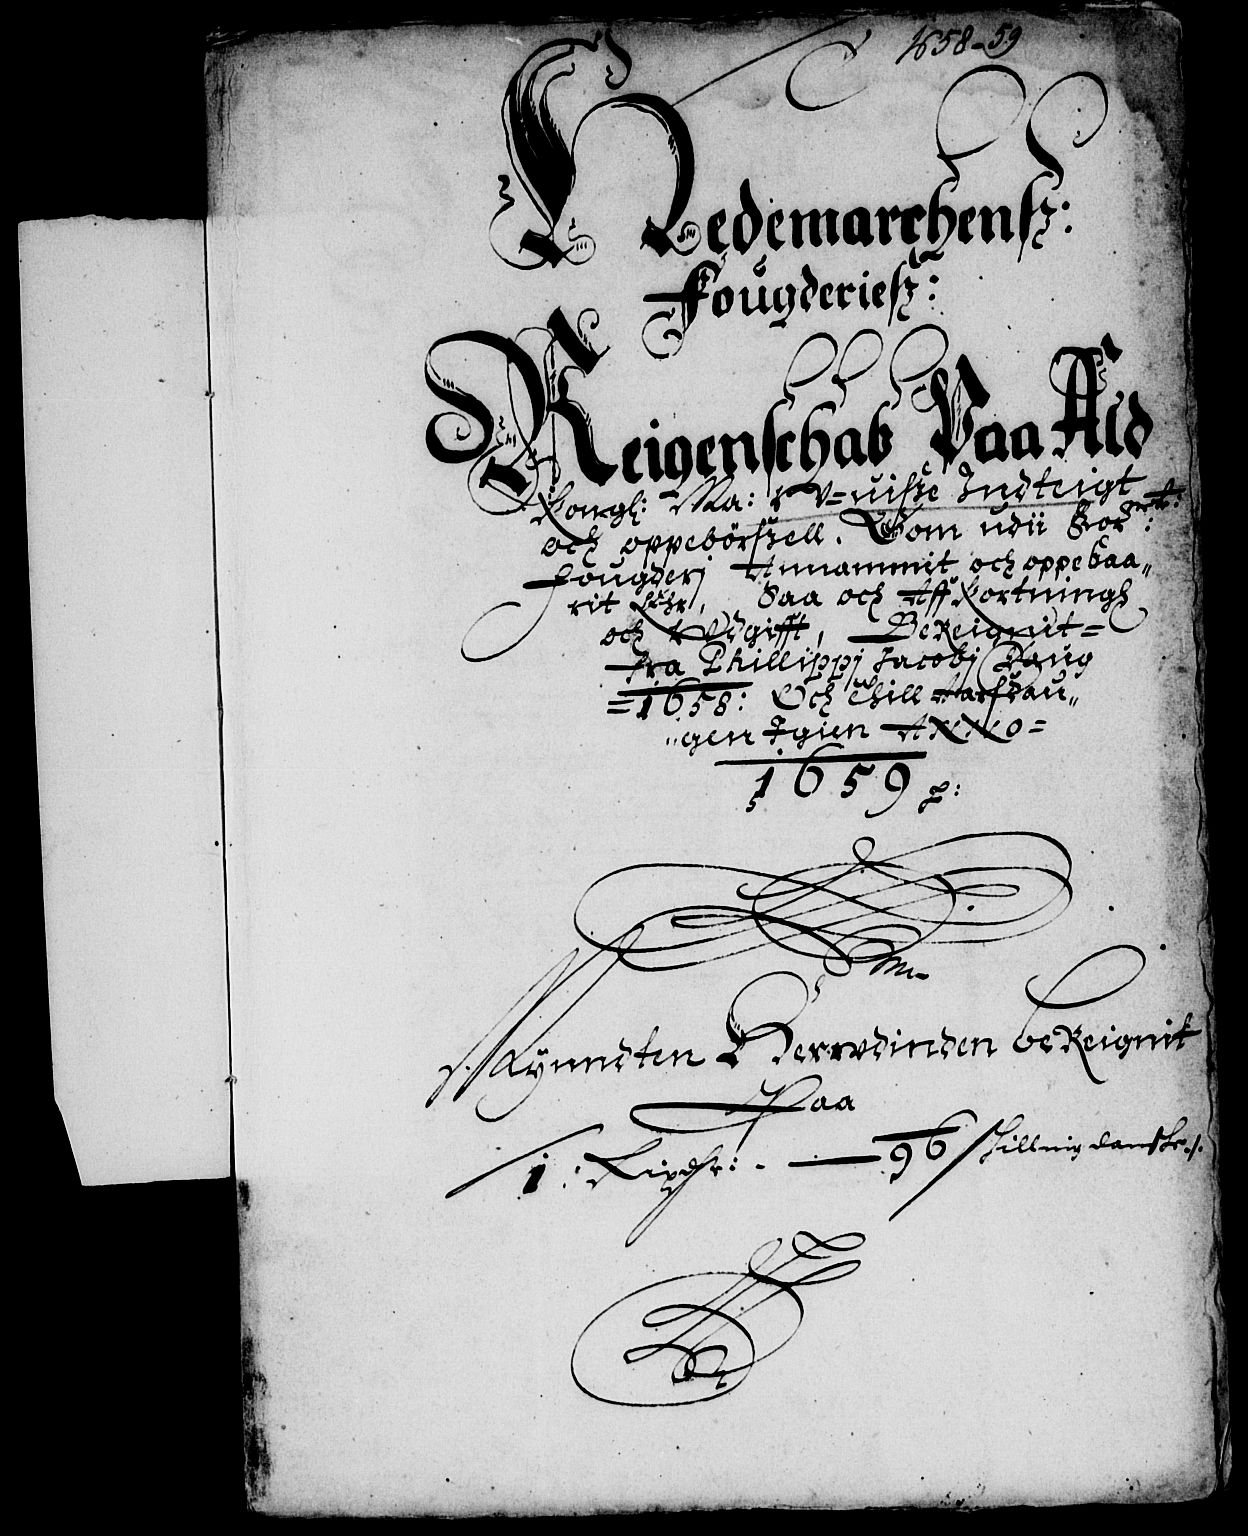 1658-59
Hedemarchens:
Fougderies:
Reigenschab Paa Ald
Kongl: Ma: VWisse Indteigt
och oppebörszell. Som udii For:
Fougderj Annammit och oppebaa„
rit Ehr, Saa och Aff Kortningh
och VVdgifft, BeReignit=
fra Phillippj Jacobj Daug
=1658: Och Thill Aarsdau„
„gen Igien ANNO=
1659
Mynndten Herrvdinden beReignit
Paa
1: Rixdlr: 96 skilling danske